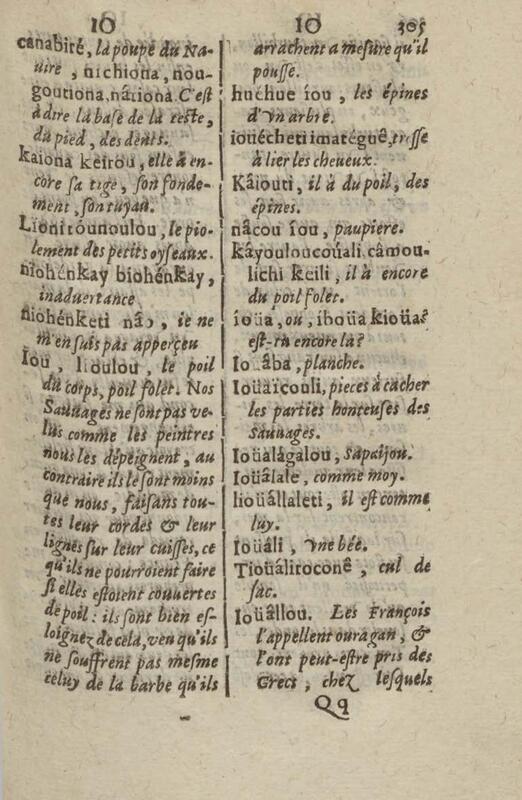 IO
canabiré, la poupe du Na-
uire, nichiona, nou-
goutiona, nâriona. C'est
à dire la base de la teste,
du pied, des dents.
Kaiona keirou, elle à en-
core sa tige, son fonde-
ment, son tuyau.
Lioniróunoulou, le pio-
lement des petits oyseaux.
niohénkay biohénkay,
inaduertance
niohénketi nâo, ie ne
m'en suis pas apperçeu
Iou, lioulou, le poil
du corps, poil folet. Nos
Sauuages ne sont pas ve-
lus comme les peintres
nous les dépeignent, au
contraire ils le sont moins
que nous, faisans tou-
tes leur cordes & leur
lignes sur leur cuisses, ce
qu'ils ne pourroient faire
si elles estoient couuertes
de poil : ils sont bien es-
loignez de cela, veu qu'ils
ne souffrent pas mesme
celuy de la barbe qu'ils
IO 305
arrachent a mesure qu'il
pousse.
huéhue íou, les épines
d'vn arbre.
iouécheti imatéguê, tresse
à lier les cheueux.
Kâiouti, il à du poil, des
épines.
nâcou íou, paupiere.
kâyouloucoúali, câmou-
lichi keili, il à encore
du poil folet.
íoüa, ou, iboüa kioüa?
est-tu encore là?
Io âba, planche.
Ioüaïcouli, pieces à cacher
les parties honteuses des
Sauuages.
Ioüalágalou, sapaijou.
Ioüâlale, comme moy.
lioüâllaleti, il est comme
luy.
Ioüâli, vne bée.
Tioüâlirocone, cul de
sac.
Ioüâllou. Les François
l'appellent ouragan, &
l'ont peut-estre pris des
Grecs, chez lesquels
Qq